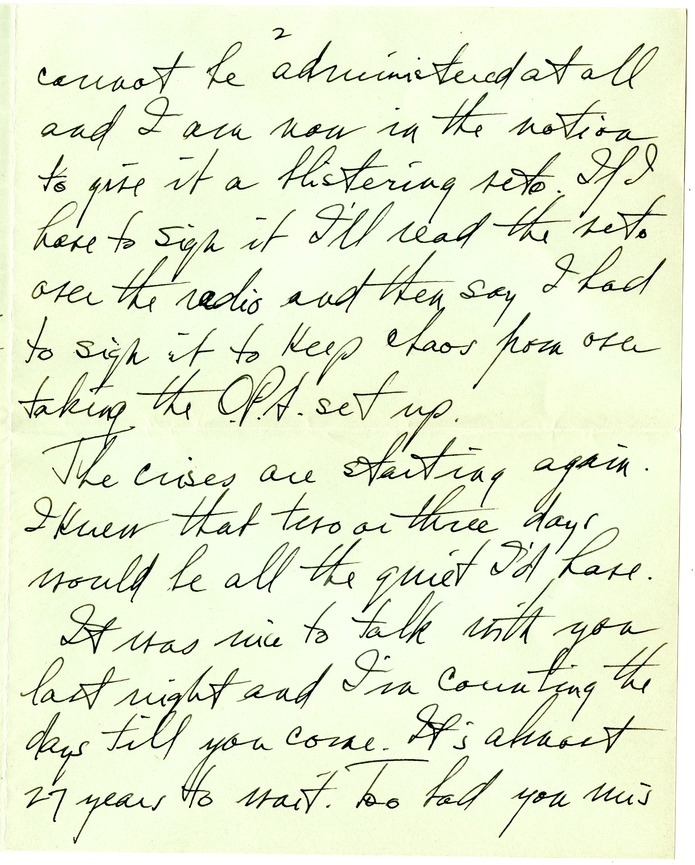 2
cannot be administered at all
and I am now in the notion
to give it a blistering veto. If I
have to sign it I'll read the veto
over the radio and then say I had
to sign it to keep chaos from over
taking the O.P.A. set up.
The crises are starting again.
I knew that two or three days
would be all the quiet I'd have.
It was nice to talk with you
last night and I'm counting the
days till you come. It's almost
27 years to wait. Too bad you mis